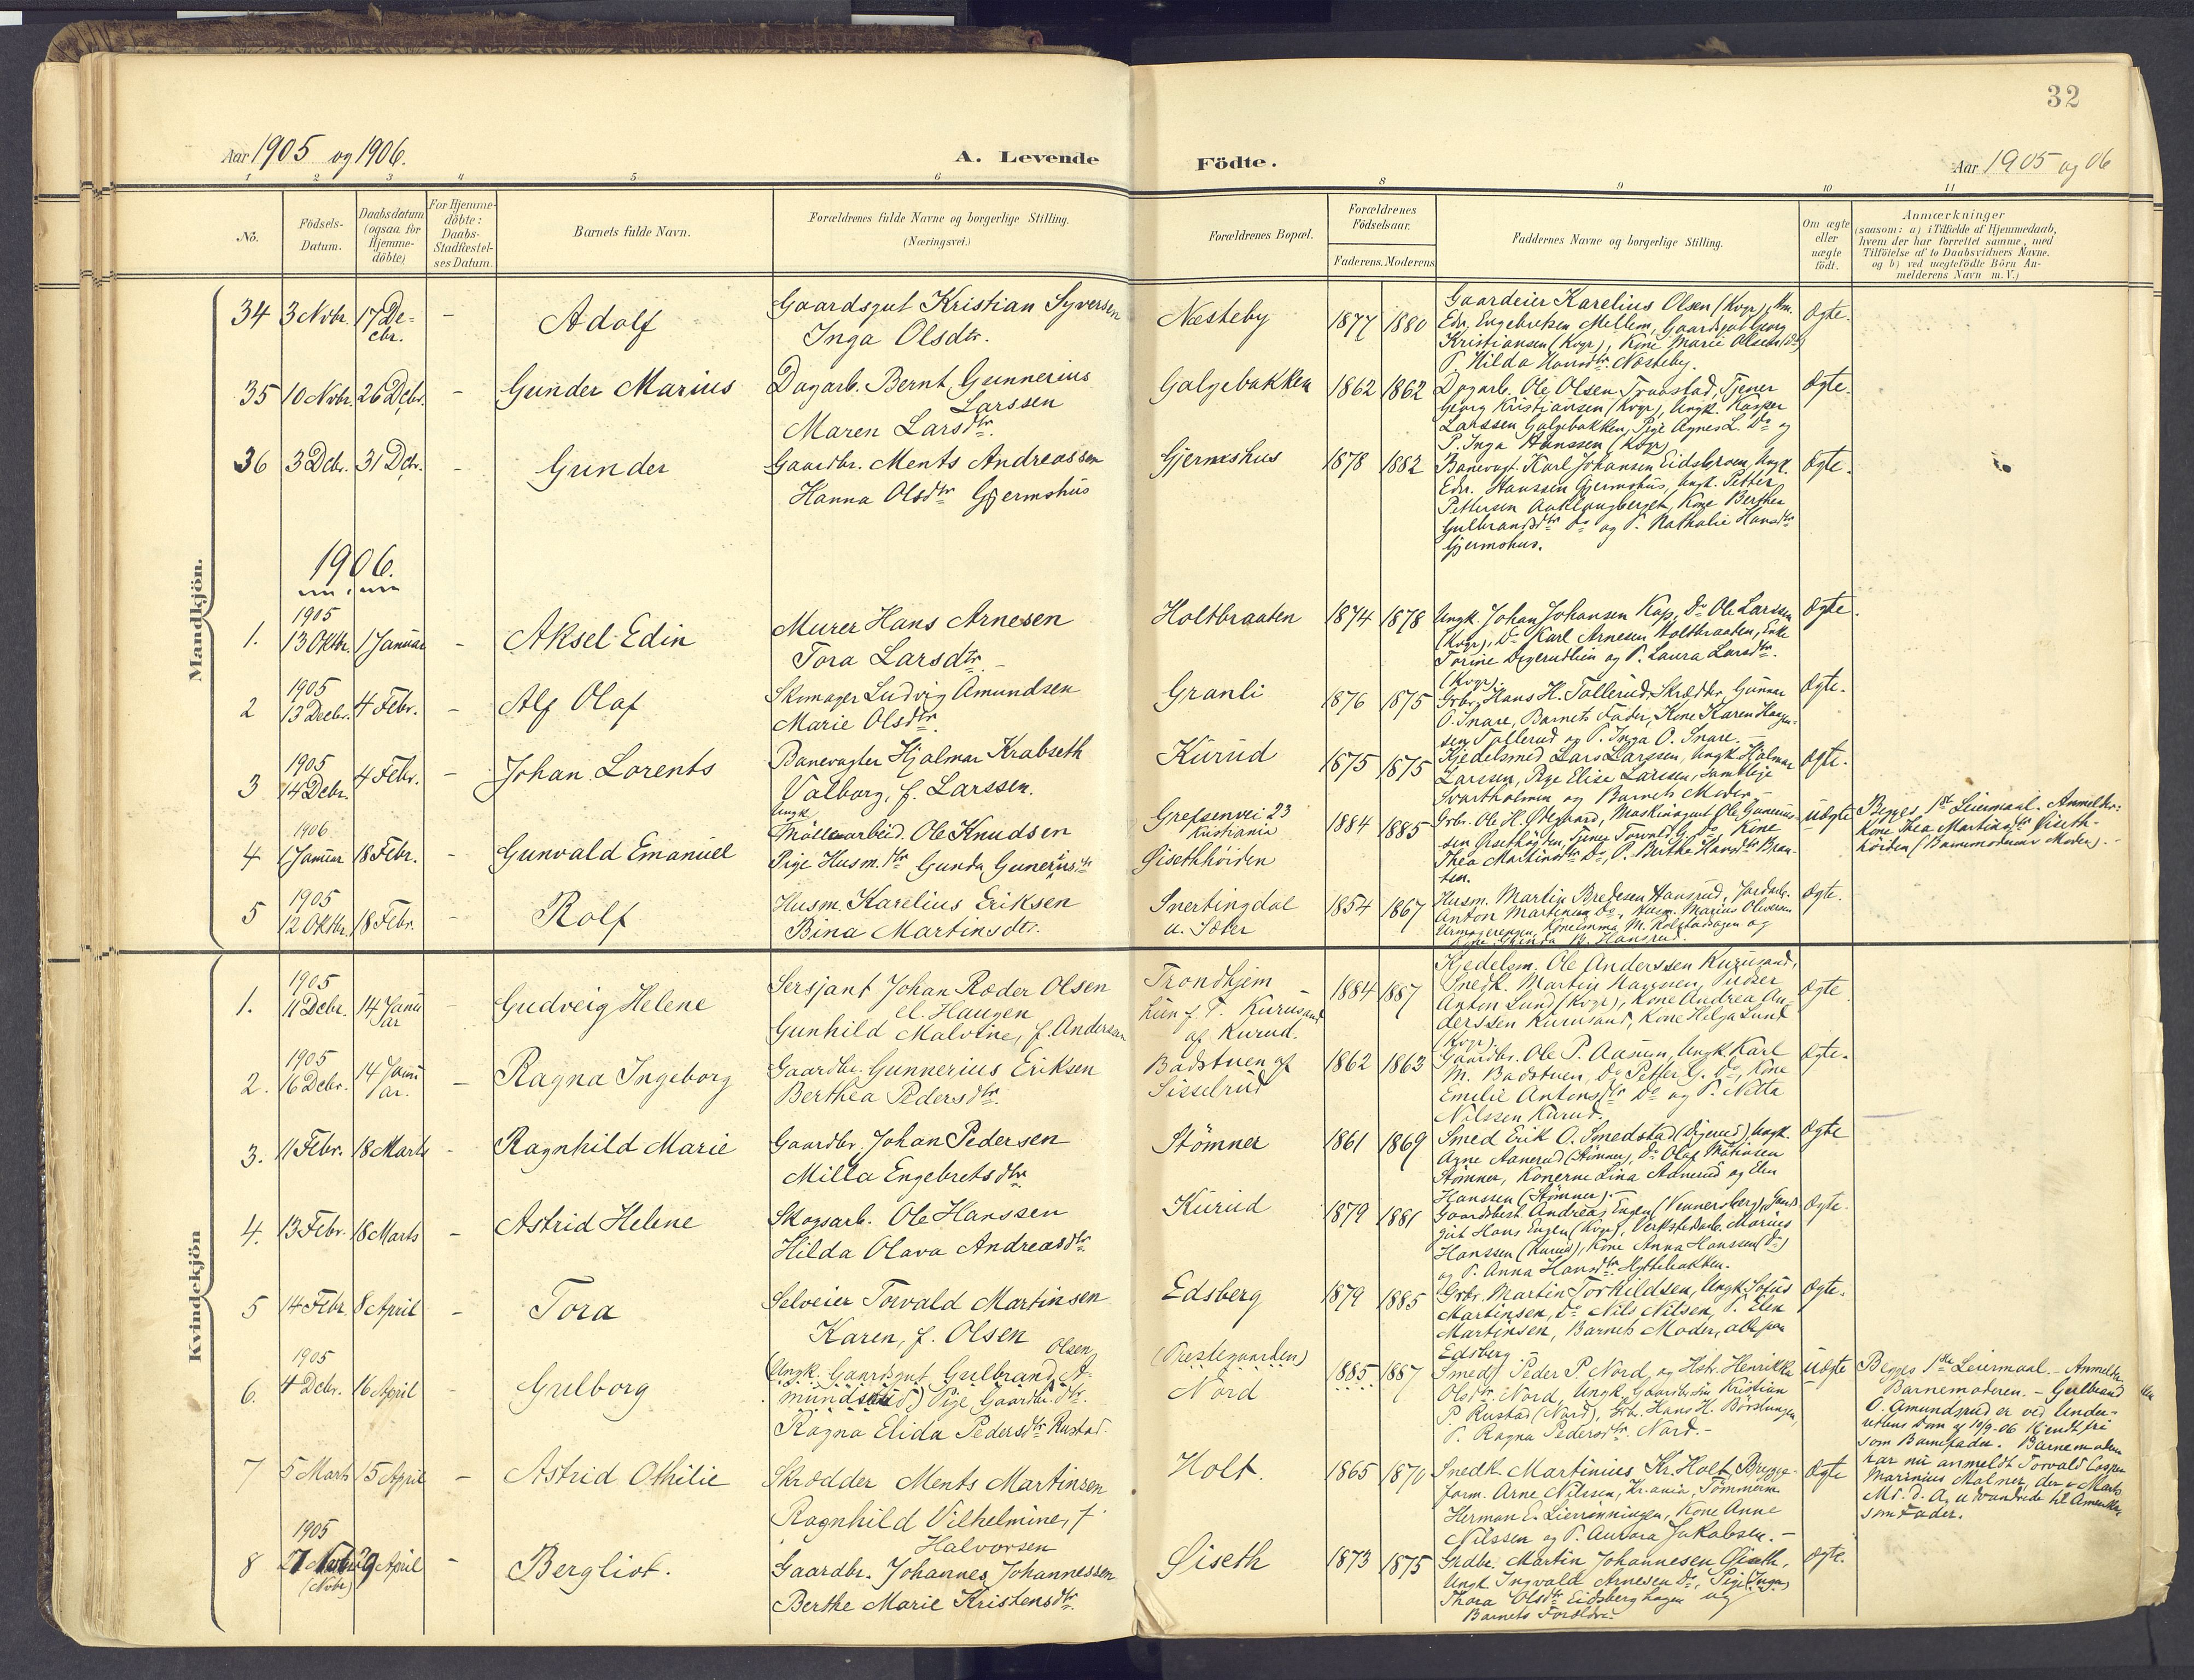 32
Aar 1905 og 1906.
A. Levende Födte.
Aar 1905 og 06
1 2 3 4 5 6 8 9 10 11
No.
Födsels-
Datum.
Daabsdatum
(ogsaa for
Hjemme-
döbte)
For Hjemme-
döbte:
Daabs-
Stadfæstel-
ses Datum.
Barnets fulde Navn.
Forældrenes fulde Navne og borgerlige Stilling.
(Næringsvei.)
Forældrenes Bopæl.
Forældrenes
Födselsaar.
Faderens. Moderens
Faddernes Navne og borgerlige Stilling.
Om ægte
eller
uægte
födt.
Anmærkninger
(saasom: a) i Tilfælde af Hjemmedaab,
hvem der har forrettet samme, med
Tilföielse af to Daabsvidners Navne.
og b) ved uægtefödte Börn An-
melderens Navn m. V.)
Mandkjön.
34 3 Novbr. 17 De-
cbr.
-
Adolf
Gaardsgut Kristian Syversen
Inga Olsdtr.
Næsteby
1877 1880
Gaardeier Karelius Olsen (Kvgr),
Edv. Engebretsen Mellem, Gaardsgut Georg
Kristiansen (Kvgr), Kone Marie Olsen (Do)
P. Hilda Hansdtr. Næsteby.
Ægte.
35 10 Novbr. 26 Debr.
-
Gunder Marius
Dagarb. Bernt Gunnerius
Larssen
Maren Larsdtr.
Galgebakken
1862 1862
Dagarb. Ole Olsen Traastad, Tjener
Georg Kristiansen (Kvgr), Ungk. Kasper
Larssen Galgebakken, Pige Agnes L. Do og
P. Inga Hanssen (Kvgr)
Ægte.
36 3 Debr. 31 Debr.
-
Gunder
Gaardbr. Ments Andreassen
Hanna Olsdtr Gjermshus
Gjermshus
1878 1882
Banevagt Karl Johansen Eidsbroen, Ungk.
Edv. Hanssen Gjermshus, Ungk. Petter
Pettersen Aaklangberget, Kone Berthea
Gulbrandsdtr Do og P. Nathalie Hansdtr
Gjermshus.
Ægte.
1906.
1.
1905
13 Oktbr. 1 Januar
-
Aksel Edin
Murer Hans Arnesen
Tora Larsdtr.
Holtbraaten
1874 1878
Ungk. Johan Johansen Kap, Do Ole Larssen
(Kvgr), Do Karl Arnesen Holtbraaten, Enke
Torine Digerudlien og P. Laura Larsdtr.
(Kvgr).
Ægte.
2
1905
13 Decbr. 4 Febr.
-
Alf Olaf
Skomager Ludvig Amundsen
Marie Olsdtr.
Granli
1876 1875
Grbr. Hans H. Tollerud, Skrædder Gunnar
O. Snare, Barnets Fader, Kone Karen Haagen-
sen Tollerud og P. Inga O. Snare.
Ægte.
3
1905
14 Debr. 4 Febr.
-
Johan Lorents
Banevogter Hjalmar Krabseth
Valborg, f. Larssen.
Kurud
1875 1875
Kjedelsmed Lars Larssen, Ungk. Hjalmar
Larssen, Pige Elise Larssen, samtlige
Svartholmen og Barnets Moder
Ægte.
4
1906
1 Januar 18 Febr.
-
Gunvald Emanuel
Ungk
Möllearbeid. Ole Knudsen
Pige Husm.dtr Gunda Gunerius.dtr
Grefsenvei 23
Kristiania
Øisethhöiden
1884 1885
Grb. Ole H. Ødegaard, Maskingut Ole Gunerius-
sen Øisethöiden, Tjener Torvald G. Do, Kone
Thea Martinsdtr Do, P. Berthe Hansdtr Braa-
ten.
Uægte
Begges 1st Leiermaal. Anmelder:
Kone Thea Martinsdtr Øiseth-
höiden (Barnemoderens Moder).
5
1905
12 Oktbr. 18 Febr.
-
Rolf
Husm. Karelius Eriksen
Bina Martinsdtr.
Snertingdal
u. Sæter
1854 1867
Husm. Martin Bredesen Hansrud, Jordarb.
Anton Martinsen Do, Husm. Marius Oliversen
Urmagerengen, Kone Emma M. Rolstadhagen og
M. Hansrud.
Ægte.
Kvindekjön
1.
1905
11 Debr. 14 Janu
ar
-
Gudveig Helene
Sersjant Johan Ræder Olsen
el. Haugen
Gunhild Malvine, f. Anderssen
Trondhjem
hun f. T. Kurusand
af Kurud.
1884 1887
Kjedelsm. Ole Anderssen Kurusand,
Snedk. Martin Hanssen, Pudser
Anton Lund (Kvgr), Kone Andrea An-
derssen Kurusand, Kone Helga Lund
(Kvgr).
Ægte
2.
1905
16 Debr. 14 Janu
ar.
-
Ragna Ingeborg
Gaardbr. Gunnerius Eriksen
Berthea Pedersdtr.
Badstuen af
Sisselrud
1862 1863
Gaardbr. Ole P. Aasum, Ungk. Karl
M. Badstuen, Do Petter G. Do, Kone
Emilie Antonsdtr Do og P. Nitta
Nilssen Kurud.
Ægte.
3. 11 Febr. 18 Marts
-
Ragnhild Marie
Gaardbr. Johan Pedersen
Milla Engebretsdtr
Stömner
1861 1869
Smed Erik O. Smedstad (Digerud), Ungk.
Arne Aanerud (Stömner), Do Olaf Mathisen
Stömner, Konerne Lina Aanerud og Elen
Hanssen (Stömner).
Ægte
4. 13 Febr. 18 Marts
-
Astrid Helene
Skogsarb. Ole Hanssen
Hilda Olava Andreasdtr.
Kurud
1879 1881
Gaardbest. Andreas Engen (Vennersberg), Gaards
gut Hans Engen (Kvgr), Verkstedarb. Marius
Hanssen (Kurud), Kone Anna Hanssen (Do)
og P. Anna Hansdtr Hyttebakken.
Ægte.
5 14 Febr. 8 April
-
Tora
Selveier Torvald Martinsen
Karen, f. Olsen
Edsberg
1879 1885
Grbr. Martin Torkildsen, Ungk. Sofus
Martinsen, Do Nils Nilsen, P. Elen
Martinsen, Barnets Moder, alle paa
Edsberg
Ægte.
6.
1905
4 Debr. 16 April
-
Gulborg
Olsen
(Ungk. Gaardsgut Gulbrand A-
mundsrud) Pige Gaardbr. Dtr.
Ragna Elida Pedersdtr Rustad.
(Prestegaarden)
Nord
1885 1887
Smed Peder P. Nord og Hstr. Henrikka
Olsdtr. Nord, Ungk. Gaardbrsön Kristian
P. Rustad (Nord), Grbr. Hans H. Börstingen,
P. Ragna Pedersdtr. Nord.-
Uægte
Begges 1ste Leiermaal - Anmelder
Barnemoderen. - Gulbrand
O. Amundsrud er ved Under-
rettens Dom af 10/9-06 kjendt fri
som Barnefader. Barnemoderen
har nu anmeldt Torvald Casper
Marinius Malner, der i Marts
Md. d. A. udvandrede til Amerika
som Fader.
7 5 Marts 15 April
-
Astrid Othilie
Skrædder Ments Martinsen
Ragnhild Vilhelmine, f.
Halvorsen
Holt.
1865 1870
Snedk. Martinius Kr. Holt, Brygge-
form. Arne Nilssen, Kr.ania, Tömmerm.
Herman E. Lierrönningen, Kone Anne
Nilssen og P. Aurora Jakobsen.-
Ægte
8
1905
(Novbr) 29 April
-
Bergliot.
Gaardbr. Johannes Johannessen
Berthe Marie Kristensdtr.
Øiseth
1873 1875
Grdbr. Martin Johannesen Øiseth,
Ungk Ingvald Arnesen Do, Pige (Inga)
Thora Olsdtr Eidsberghagen og
Barnets Forældre
Ægte.